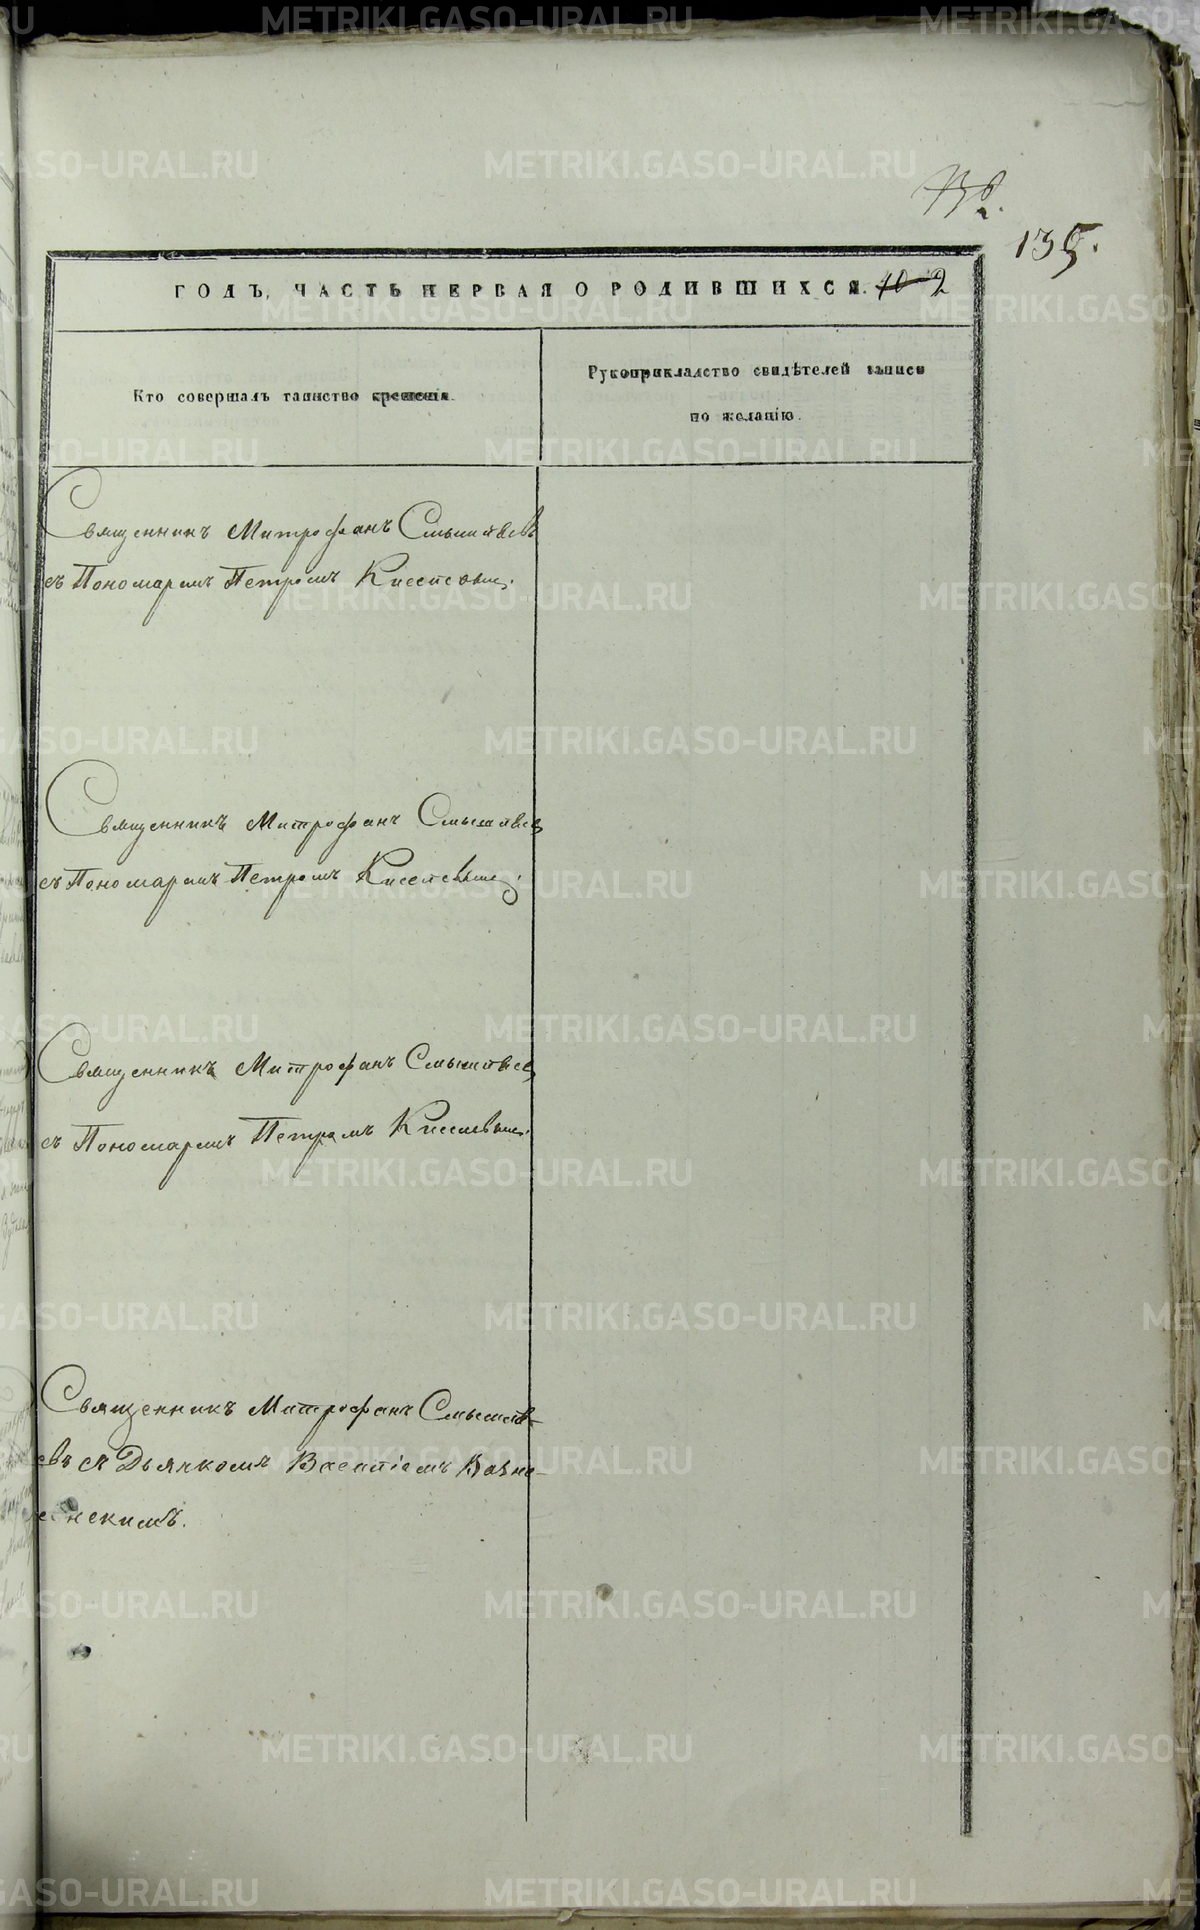 135.
ГОДЪ, ЧАСТЬ ПЕРВАЯ О РОДИВШИХСЯ. 2
Кто совершалъ таинство крещенія.
Рукоприкладство свидѣтелей записи
по желанію.
Священникъ Митрофанъ Смышляевъ
съ Пономаремъ Петромъ Киселевымъ.
Священникъ Митрофанъ Смышляевъ
съ Пономаремъ Петромъ Киселевымъ.
Священникъ Митрофанъ Смышляевъ
съ Пономаремъ Петромъ Киселевымъ.
Священникъ Митрофанъ Смышля-
евъ съ Дьячкомъ Василіемъ Возне-
сенскимъ.
METRIKI.GASO-URAL.RU